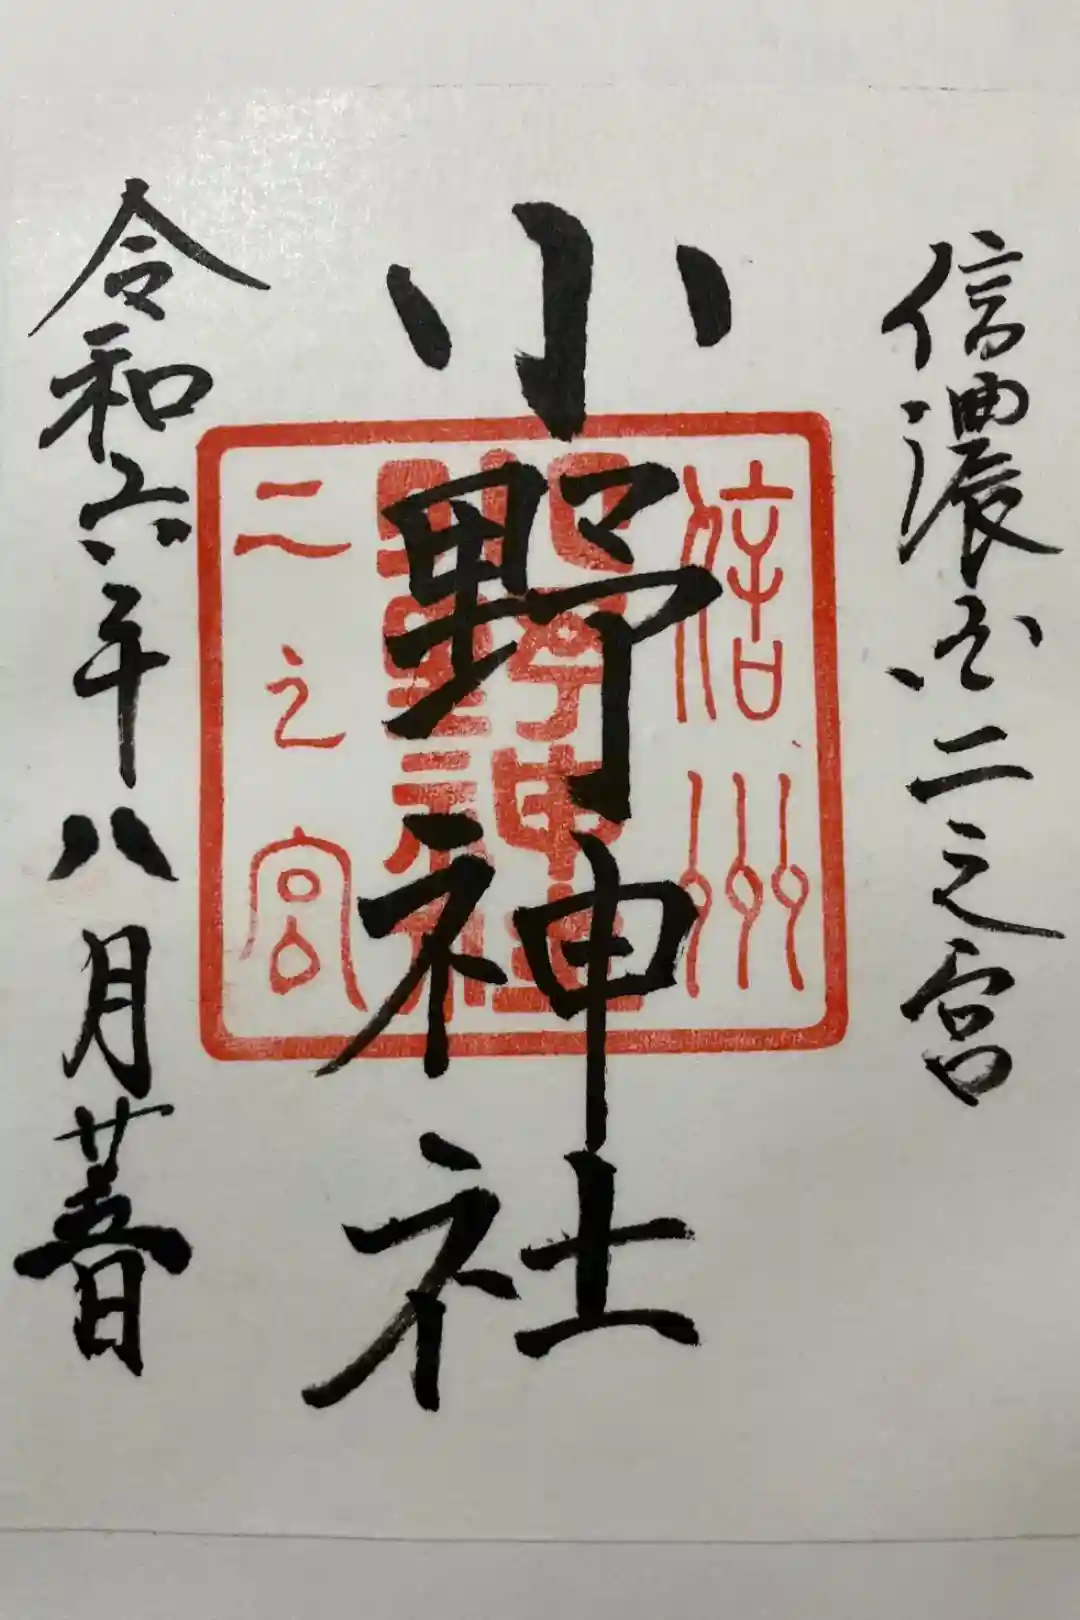 信濃国二之宮
小野神社
令和六年八月廿五日
信州
小野神社
二之宮